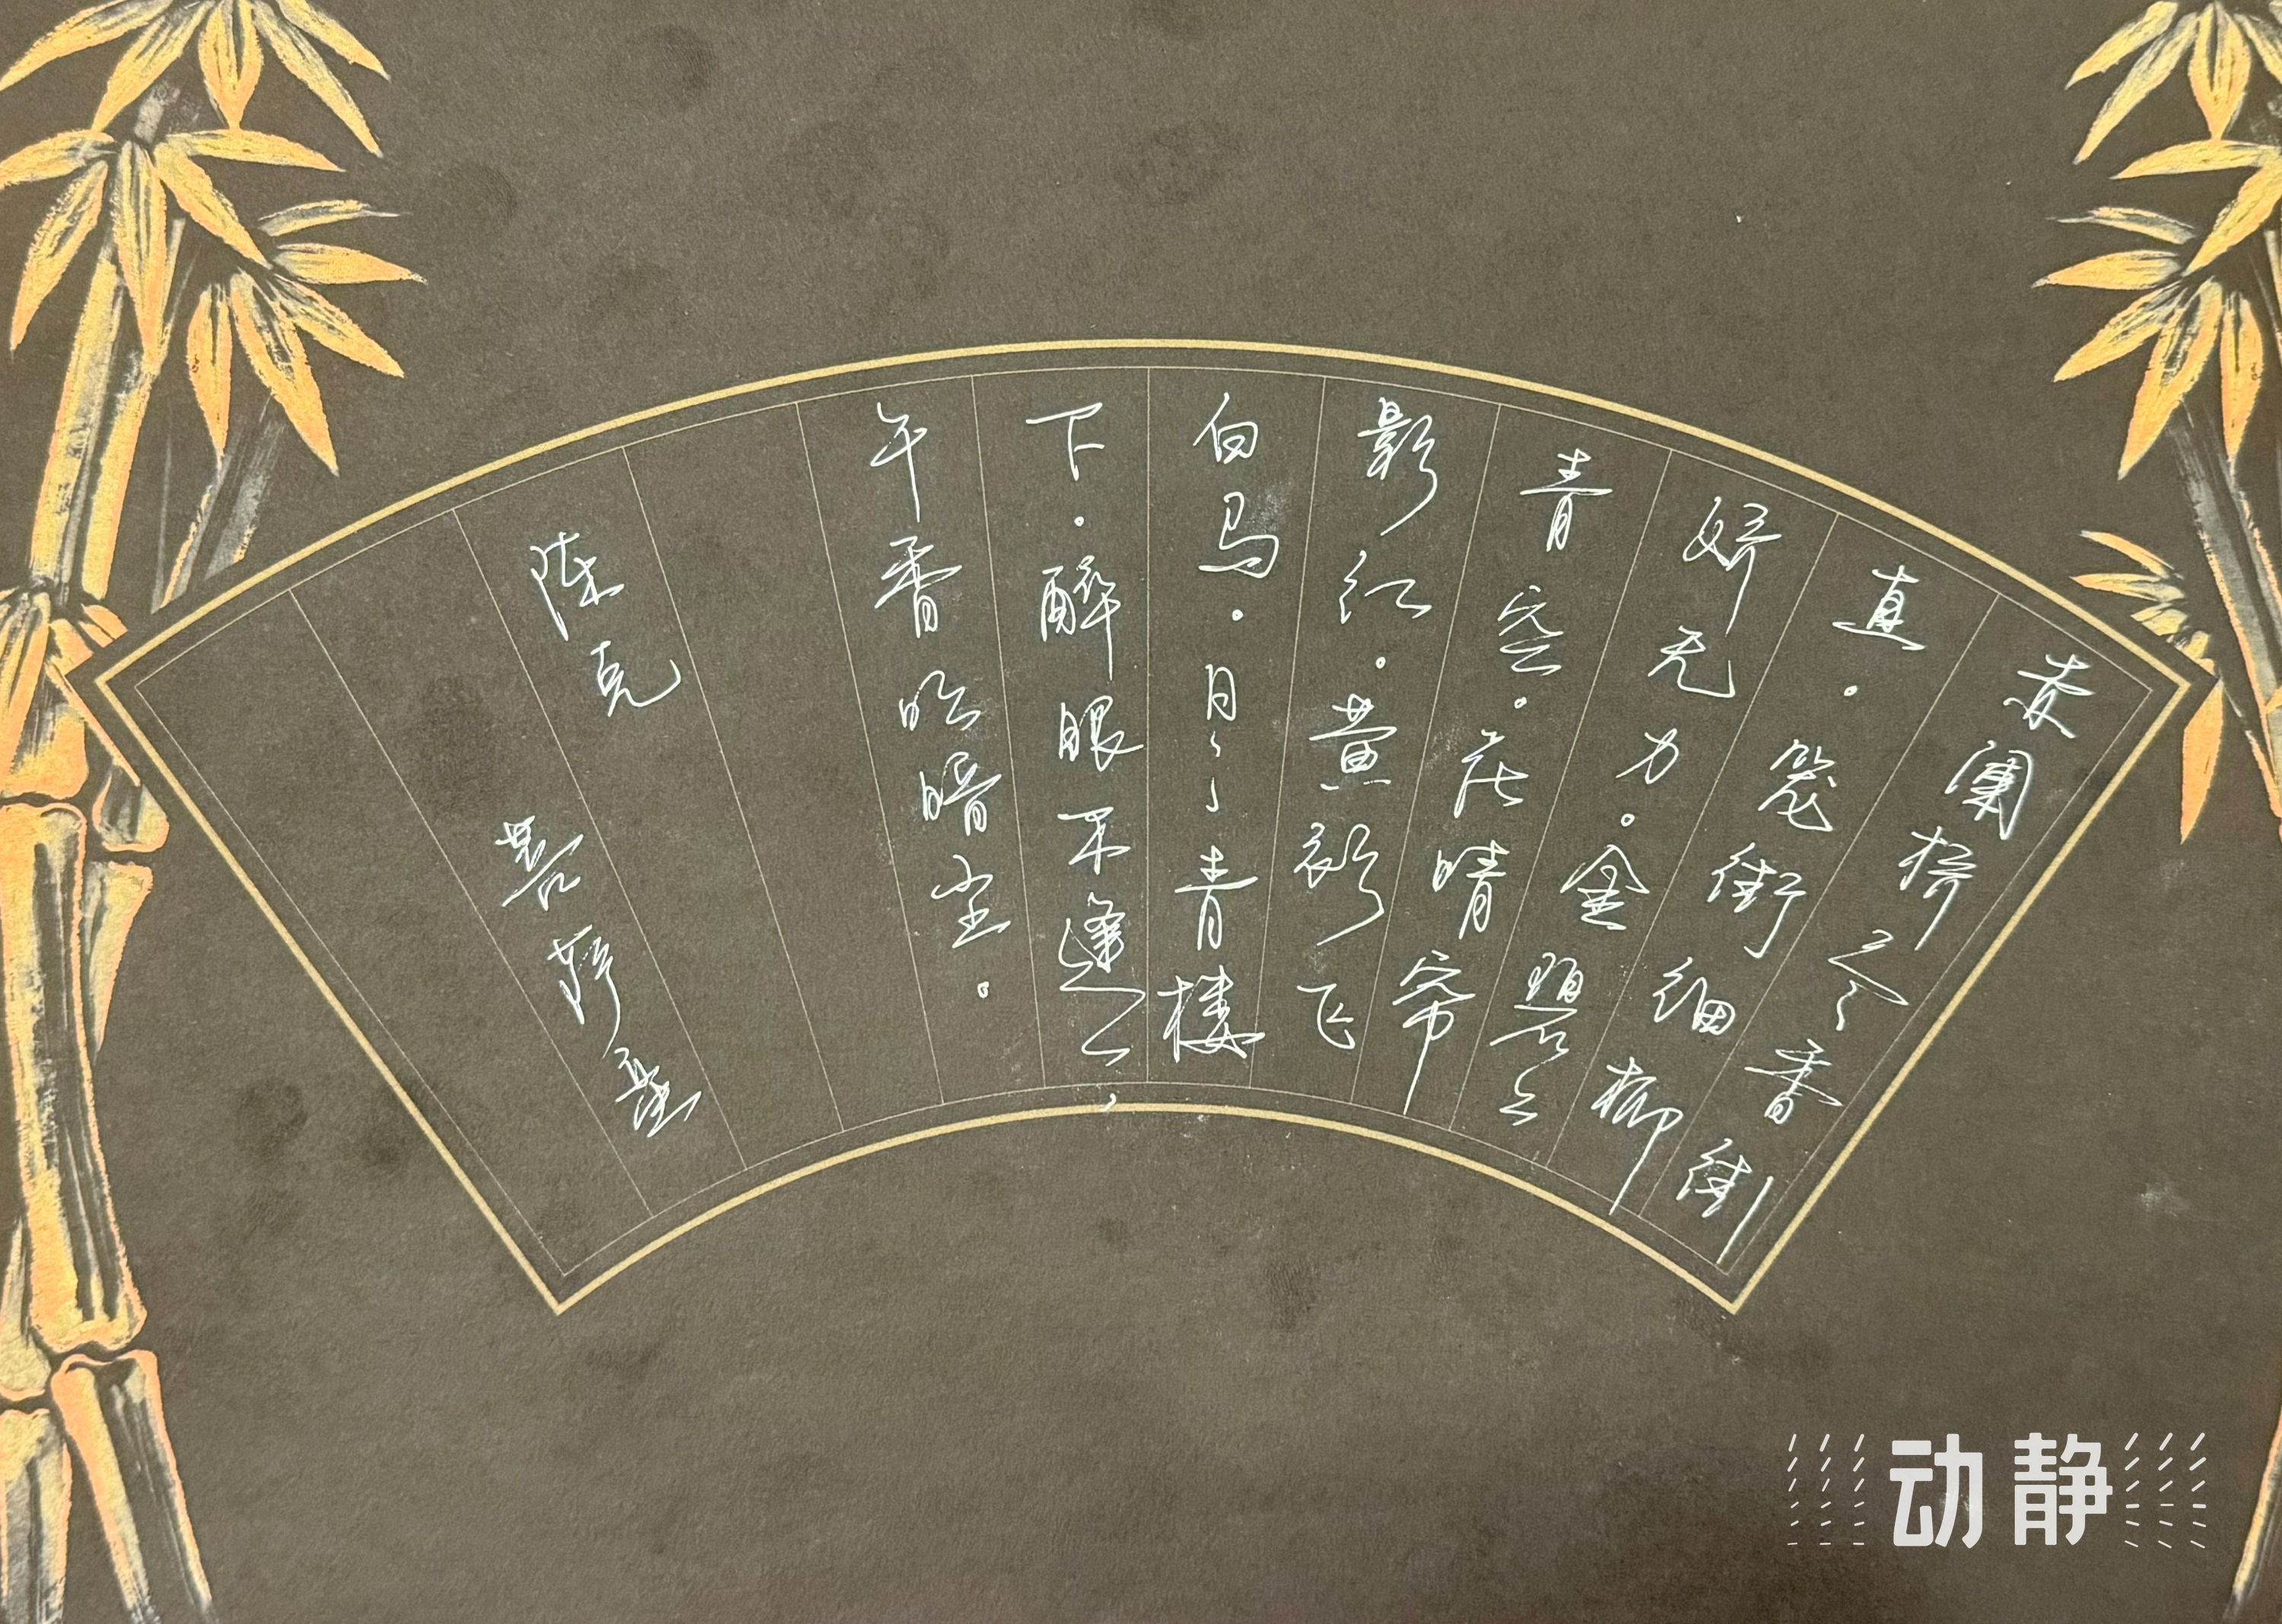 赤阑桥尽香街
直。笼街细柳
娇无力。金碧上
青空。花晴帘
影红。黄衫飞
白马。日日青楼
下。醉眼不逢人,
午香吹暗尘。
陈克 菩萨蛮
动静